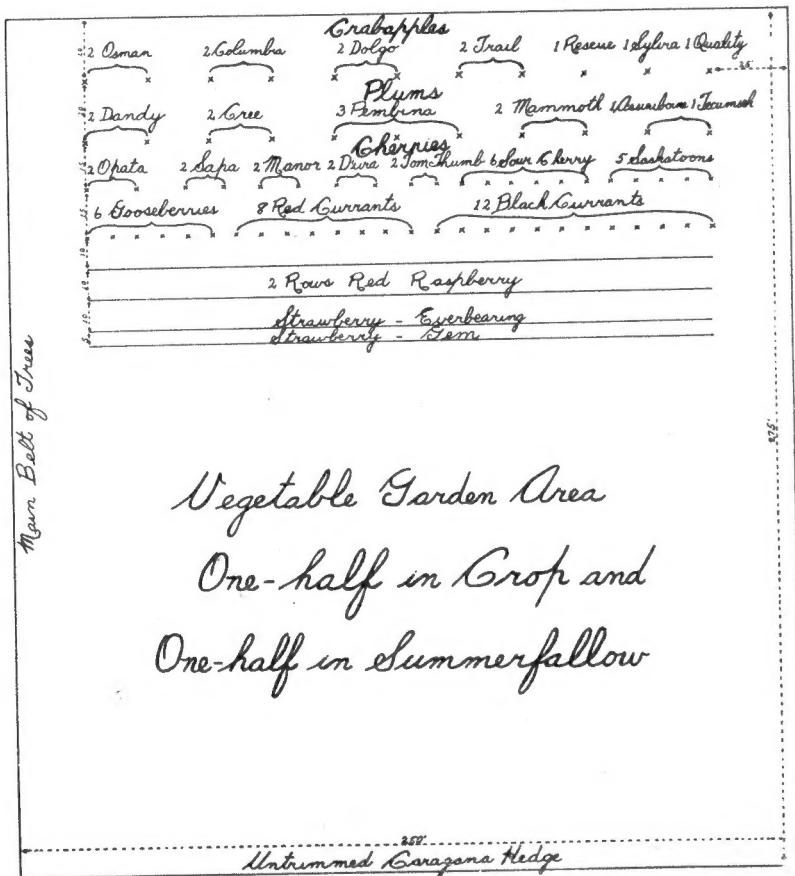 Crabapples
2 Osman 2 Columbia 2 Dolgo 2 Trail 1 Rescue 1 Sylvia 1 Quality
25'
Plums
2 Dandy 2 Cree 3 Pembina 2 Mammoth 1 Assiniboine 1 Tecumseh
Cherries
2 Opata 2 Sapa 2 Manor 2 Dura 2 Tom Thumb 6 Sour Cherry 5 Saskatoons
6 Gooseberries 8 Red Currants 12 Black Currants
2 Rows Red Raspberry
Strawberry - Everbearing
Strawberry - Gem
Main Belt of Trees
275'
Vegetable Garden Area
One-half in Crop and
One-half in Summerfallow
250'
Untrimmed Caragana Hedge